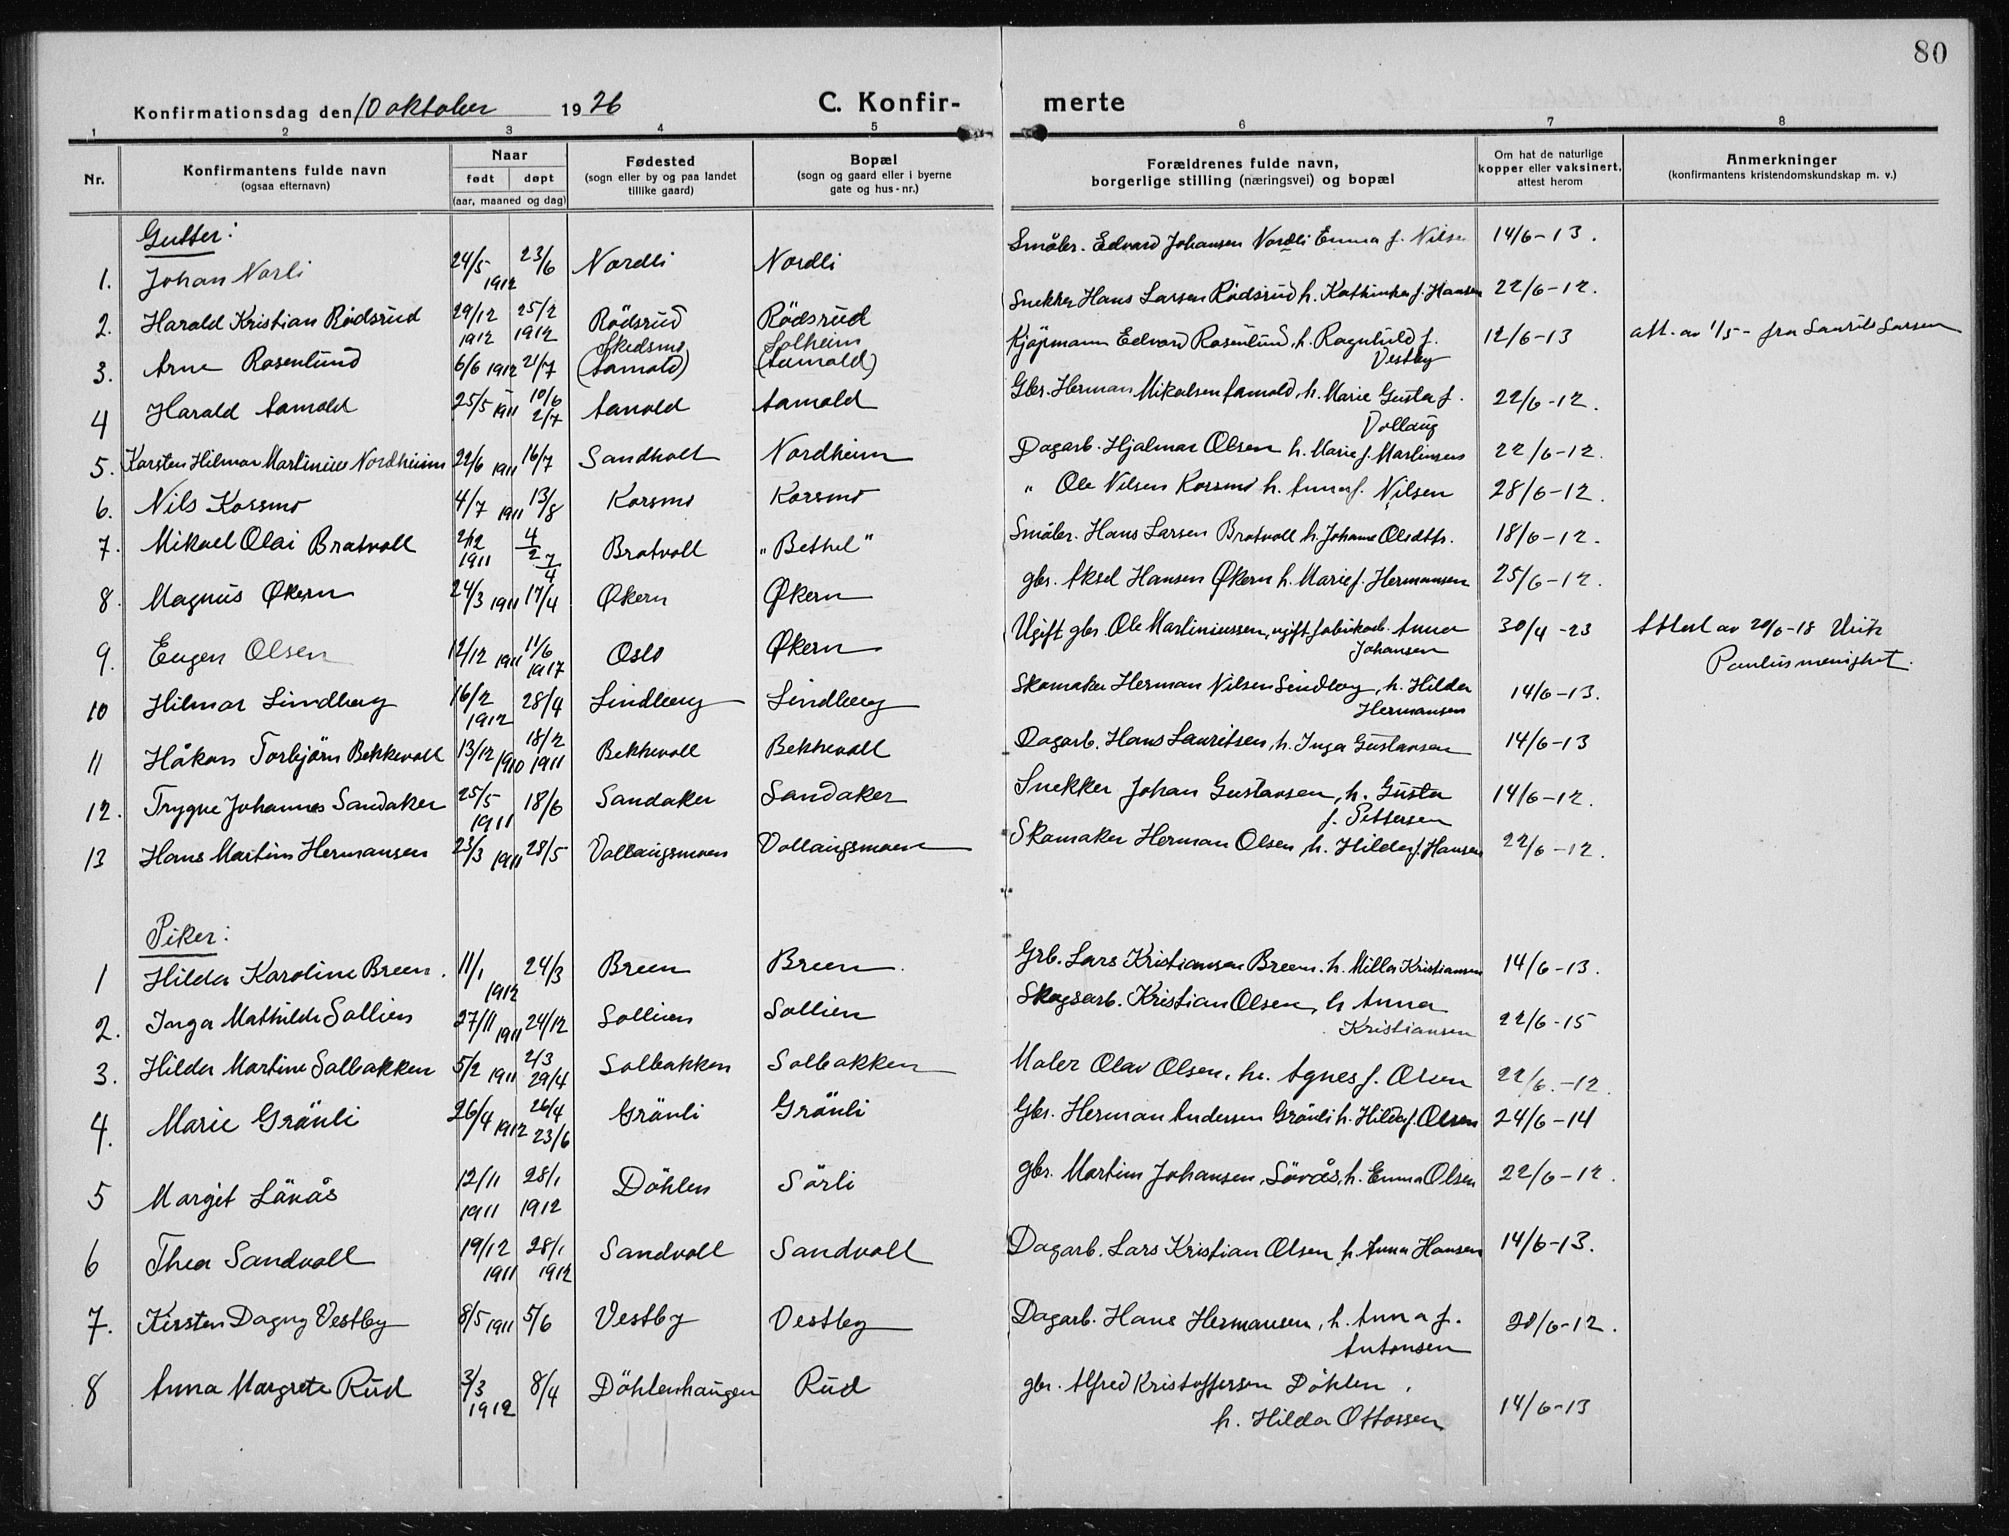 80
Konfirmationsdag den 10 oktober 1926 C. Konfir- merte
1 2 3 4 5 6 7 8
Nr. Konfirmantens fulde navn (ogsaa efternavn) Naar født døpt (aar, maaned og dag) Fødested (sogn eller by og paa landet tillike gaard) Bopæl (sogn og gaard eller i byerne gate og hus-nr.) Forældrenes fulde navn, borgerlige stilling (næringsvei) og bopæl Om hat de naturlige kopper eller vaksinert, attest herom Anmerkninger (konfirmantens kristendomskundskap m. v.)
Gutter:
1. Johan Norli 24/5 1912 23/6 Nordli Nordli Småbr. Edvard Johansen Nordli Emma f. Nilsen 14/6-13.
2. Harald Kristian Rödsrud 29/12 1912 25/2 1912 Rödsrud Rödsrud Snekker Hans Larsen Rödsrud h. Kathinka f. Hansen 22/6-12.
3. Arne Rosenlund 6/6 1912 21/7 Skedsmo (Aamold) Solheim (Aamold) Kjöpmann Edvard Rosenlund, h. Ragnhild f. Vestby 12/6-13 att. av 1/5- fra Laurits Larsen
4 Harald Aamold 25/5 1911 10/6 2/7 Aamold Aamold Gbr. Herman Mikalsen Aamold, h. Marie Gusta f. Vollaug 22/6-12.
5. Karsten Hilmar Martinius Nordheim 22/6 1911 16/7 Sandholt Nordheim Dagarb. Hjalmar Olsen h. Marie f. Martinsen 22/6-12.
6. Nils Korsmo 4/7 1911 13/8 Korsmo Korsmo " Ole Nilsen Korsmo h. Anna f. Nilsen 28/6-12.
7. Mikael Olai Bratvoll 2/12 1911 4/2 7/4 Bratvoll "Bethel" Småbr. Hans Larsen Bratvoll h. Johanne Olsdtr. 18/6-12.
8. Magnus Økern 24/3 1911 17/4 Økern Økern gbr. Aksel Hansen Økern h. Marie f. Hermansen 25/6-12.
9. Eugen Olsen 12/12 1911 11/6 1917 Oslo Økern Ugift gbr. Ole Martiniussen, ugift fabrikarb. Anna Johansen 30/4-23 Attest av 20/6-18 Paulus menighet.
10 Hilmar Lindberg 16/2 1912 28/4 Lindberg Lindberg Skomaker Herman Nilsen Lindberg, h. Hilda Hermansen 14/6-13.
11 Håkon Torbjörn Bekkevoll 13/12 1910 18/2 1911 Bekkevoll Bekkevoll Dagarb. Hans Lauritsen, h. Inga Gustavsen 14/6-13
12. Trygve Johannes Sandaker 25/5 1911 18/6 Sandaker Sandaker Snekker Johan Gustavsen, h. Gusta f. Pettersen 14/6-12.
13 Hans Martin Hermansen 23/3 1911 28/5 Vollaugsmoen Vollaugsmoen Skomaker Herman Olsen, h. Hilda f. Hansen 22/6-12.
Piker:
1 Hilda Karoline Breen. 11/1 1912 24/3 Breen Breen. Grb. Lars Kristiansen Breen. h. Milla Kristiansen 14/6-13.
2. Inga Mathilde Sollien 27/11 1911 24/12 Sollien Sollien Skogsarb. Kristian Olsen, h Anna Kristiansen 22/6-15
3. Hilda Martine Solbakken 5/2 1911 2/3 29/4 Solbakken Solbakken Maler Olav Olsen, h. Agnes f. Olsen 22/6.-12.
4. Marie Grönli 26/4 1912 26/4 23/6 Grönli Grönli Gbr. Herman Andersen Grönli h. Hilda f. Olsen 24/6-14
5 Margit Lövås 12/11 1911 28/1 1912 Döhlen Sörli gbr. Martin Johansen, Lövås, h. Emma Olsen 22/6-12.
6 Thea Sandvoll 19/12 1911 28/1 1912 Sandvoll Sandvoll Dagarb. Lars Kristian Olsen h. Anna Hansen 14/6-13.
7. Kirsten Dagny Vestby 8/5 1911 5/6 Vestby Vestby Dagarb. Hans Hermansen, h. Anna f. Antonsen 20/6-12.
8 Anna Margrete Rud 3/3 1912 8/4 Döhlenhaugen Rud gbr. Alfred Kristoffersen Döhlen, h. Hilda Ottossen 14/6-13